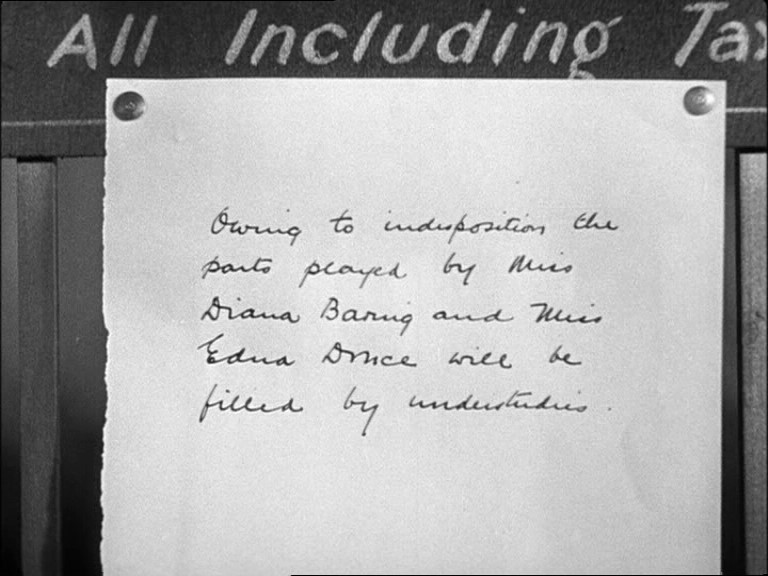 All Including Tax
Owing to indisposition the
parts played by Miss
Diana Baring and Miss
Edna Druce will be
filled by understudies.